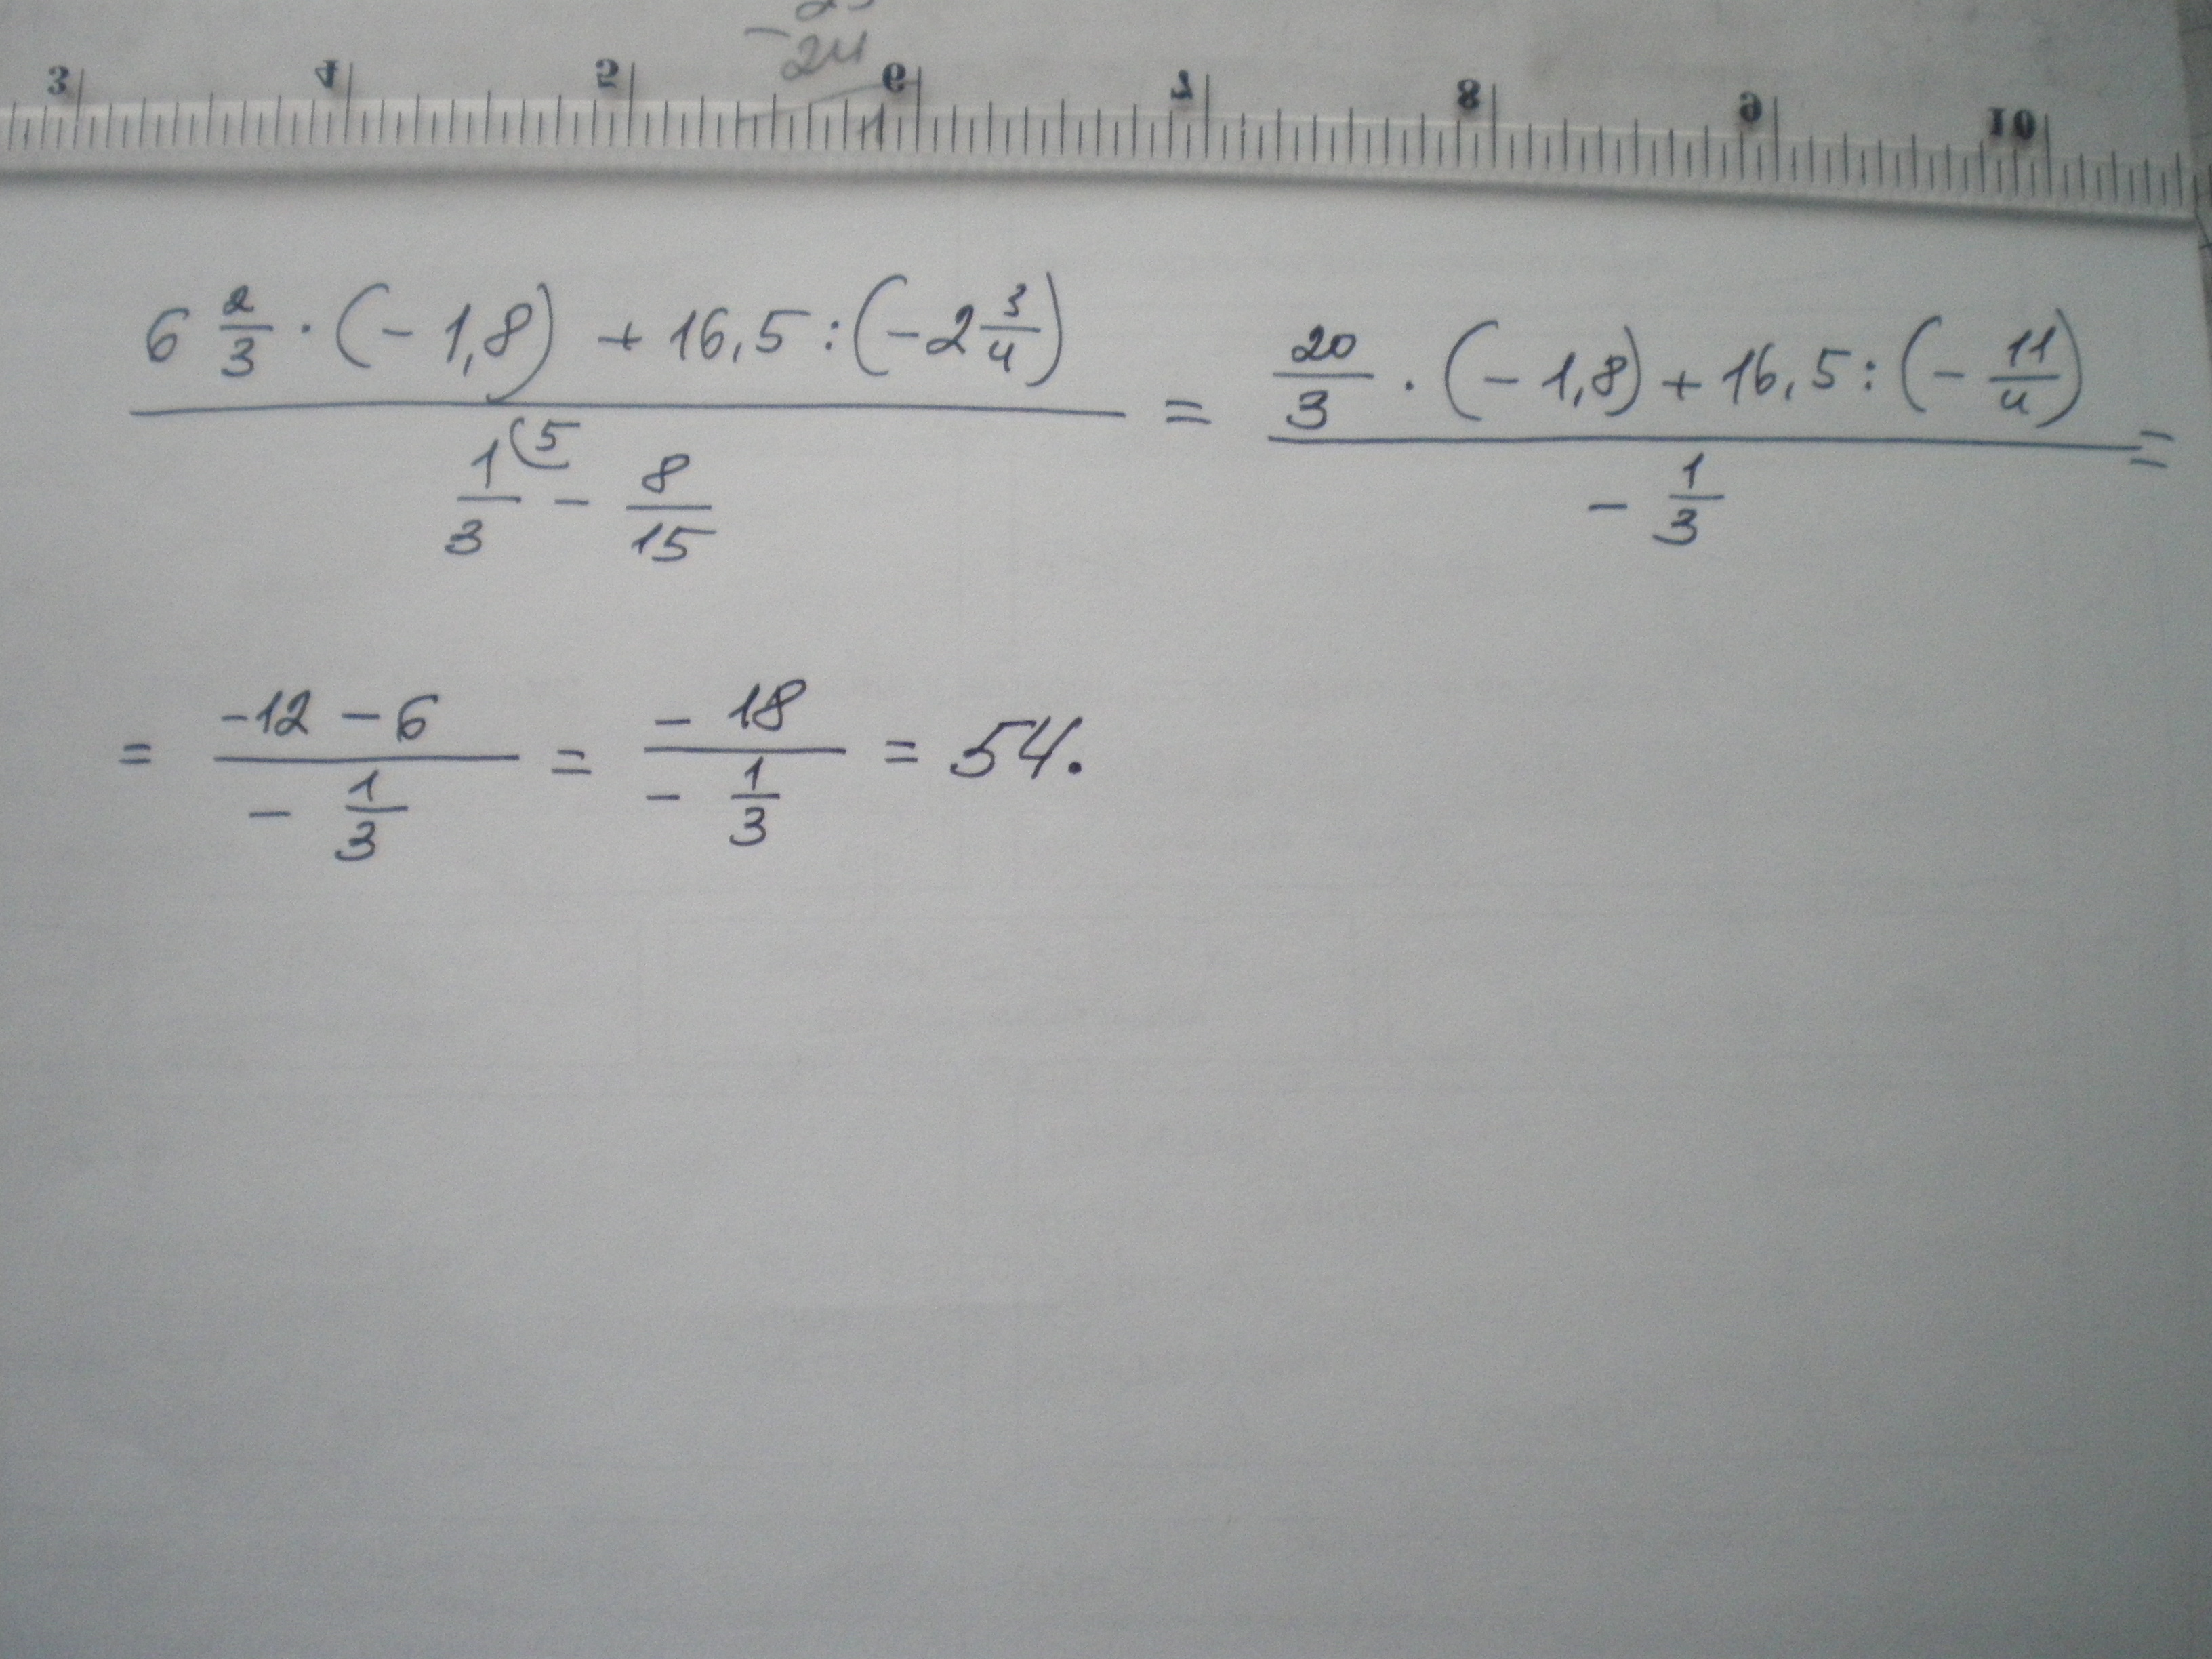 24
3 4 5 6 7 8 9 10
6 2/3 · (- 1,8) + 16,5 : (-2 3/4) / 1/3 (5 - 8/15 = 20/3 · (- 1,8) + 16,5 : (- 11/4) / - 1/3 =
= -12 - 6 / - 1/3 = - 18 / - 1/3 = 54.